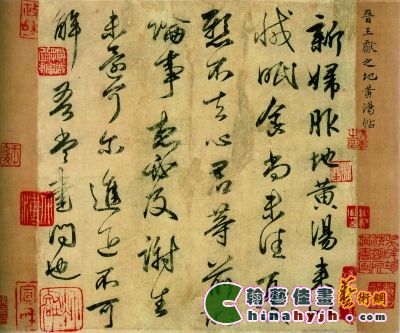 晉王獻之地黃湯帖
新婦服地黃湯來
減眠食尚未佳憂
懸不去心君等前所
論事想必及謝生
未還可爾進退不可
解吾當書問也
翰藝佳畫
藝術網
hinahyjh.com